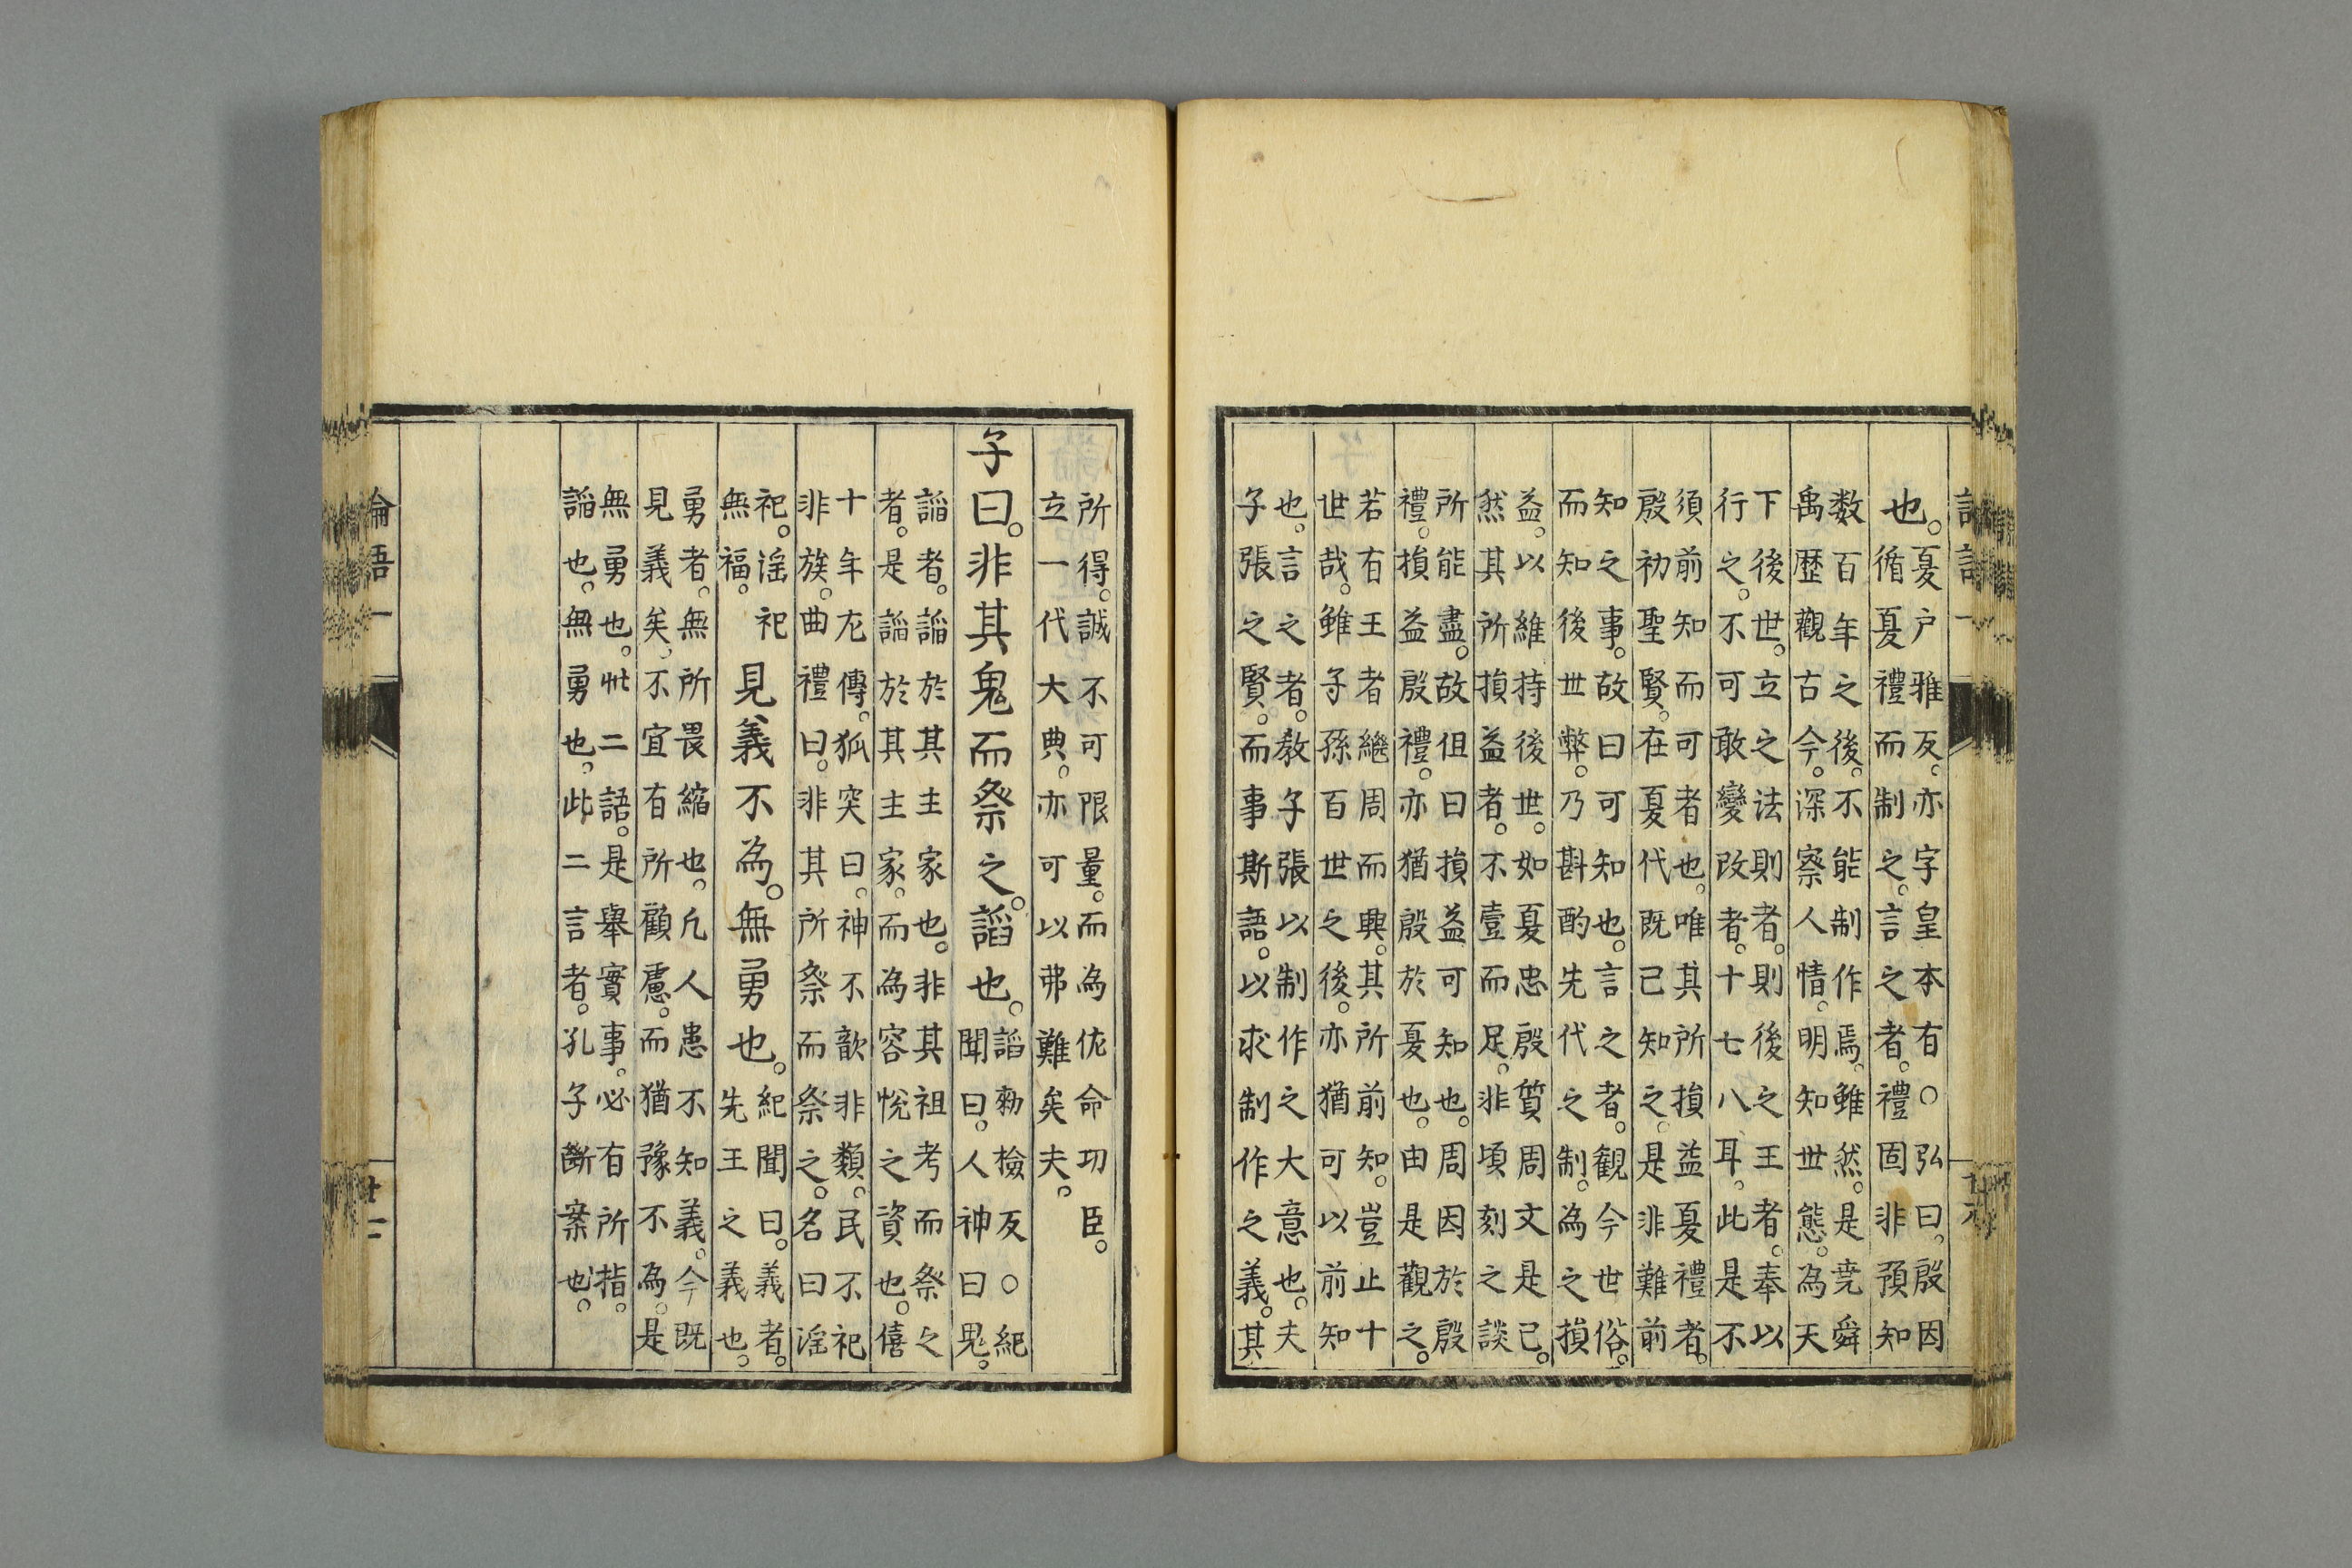 也。
夏户雅反。亦字皇本有○弘曰。殷因
循夏禮而制之。言之者。禮固非預知
数百年之後。不能制作焉。雖然。是堯舜
禹歴觀古今。深察人情。明知世態。為天
下後世。立之法則者。則後之王者。奉以
行之。不可敢變改者。十七八耳。此是不
須前知而可者也。唯其所損益夏禮者。
殷初聖賢。在夏代既已知之。是非難前
知之事。故曰可知也。言之者。観今世俗。
而知後世弊。乃斟酌先代之制。為之損
益。以維持後世。如夏忠殷質周文是已。
然其所損益者。不壹而足。非頃刻之談
所能盡。故但曰損益可知也。周因於殷
禮。損益殷禮。亦猶殷於夏也。由是觀之。
若有王者繼周而興。其所前知。豈止十
世哉。雖子孫百世之後。亦猶可以前知
也。言之者。教子張以制作之大意也。夫
子張之賢。而事斯語。以求制作之義。其
所得。誠不可限量。而為佐命功臣。
立一代大典。亦可以弗難矣夫。
子曰。非其鬼而祭之。謟也。
謟勑檢反○紀
聞曰。人神曰鬼。
謟者。謟於其主家也。非其祖考而祭之
者。是謟於其主家。而為容悅之資也。僖
十年左傳。狐突曰。神不歆非類。民不祀
非族。曲禮曰。非其所祭而祭之。名曰淫
祀。淫祀
無福。
見義不為。無勇也。
紀聞曰。義者。
先王之義也。
勇者。無所畏縮也。凡人患不知義。今既
見義矣。不宜有所顧慮。而猶豫不為。是
無勇也。此二語。是舉實事。必有所指。
謟也。無勇也。此二言者。孔子斷案也。
論語一